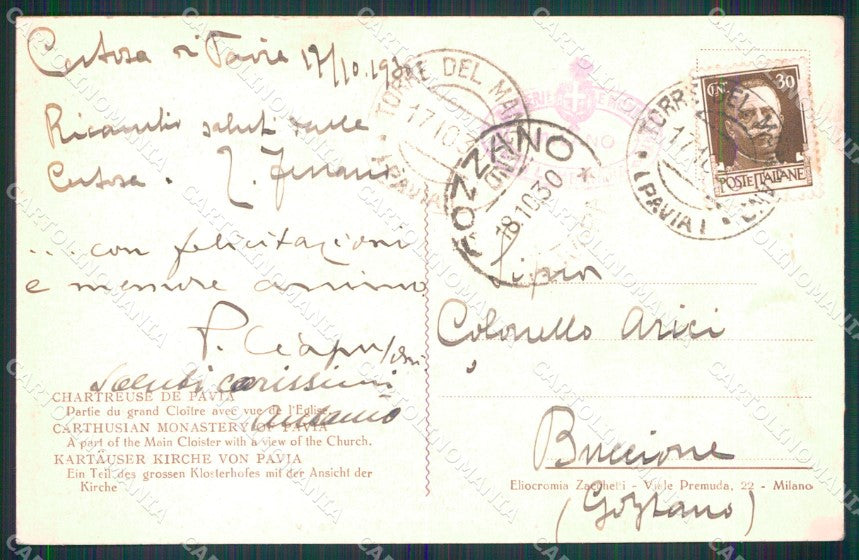 Certosa di Pavia 17/10.1930
Ricambio saluti dalla
Certosa.
... con felicitazioni
e memore animo
P.
Saluti carissimi
CHARTREUSE DE PAVIA
Partie du grand Cloître avec vue de l'Eglise.
CARTHUSIAN MONASTERY OF PAVIA
A part of the Main Cloister with a view of the Church.
KARTÄUSER KIRCHE VON PAVIA
Ein Teil des grossen Klosterhofes mit der Ansicht der
Kirche
TORRE DEL MANGANO
17.10.30
(PAVIA)
GOZZANO
18.10.30
TORRE DEL MANGANO
17.10
(PAVIA)
CENT. 30
POSTE ITALIANE
Colonello Arici
Buccione
Eliocromia Zacchetti - Viale Premuda, 22 - Milano
(Gozzano)
CARTOLINOMANIA